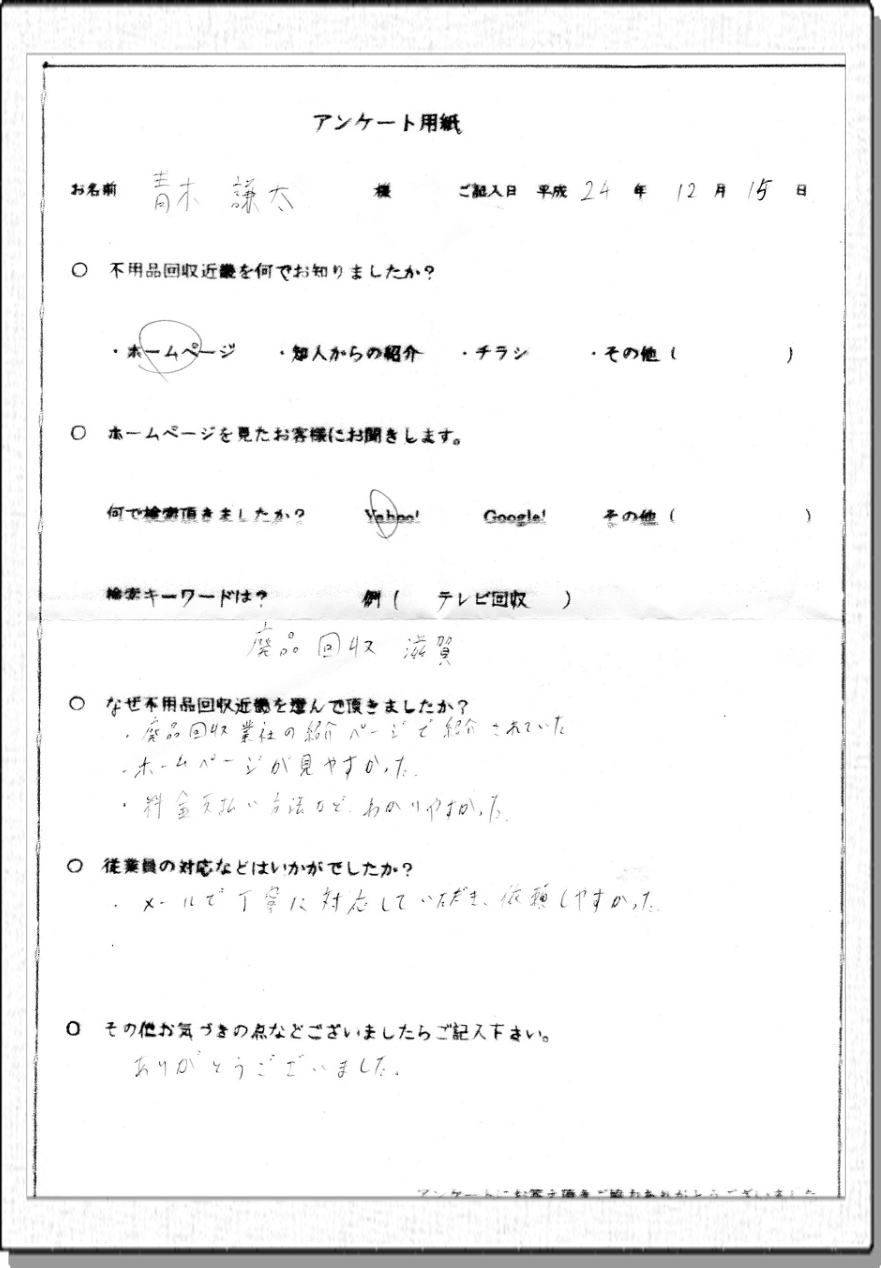 アンケート用紙
お名前 青木 謙太 様 ご記入日 平成 24 年 12 月 15 日
○ 不用品回収近畿を何でお知りましたか？
・ホームページ ・知人からの紹介 ・チラシ ・その他（ ）
○ ホームページを見たお客様にお聞きします。
何で検索頂きましたか？ Yahoo! Google! その他（ ）
検索キーワードは？ 例（ テレビ回収 ）
廃品回収 滋賀
○ なぜ不用品回収近畿を選んで頂きましたか？
・廃品回収業社の紹介ページで紹介されていた
・ホームページが見やすかった。
・料金支払い方法など、わかりやすかった。
○ 従業員の対応などはいかがでしたか？
・メールで丁寧に対応していただき、依頼しやすかった。
・
○ その他お気づきの点などございましたらご記入下さい。
ありがとうございました。
アンケートにお答え頂きご協力ありがとうございました